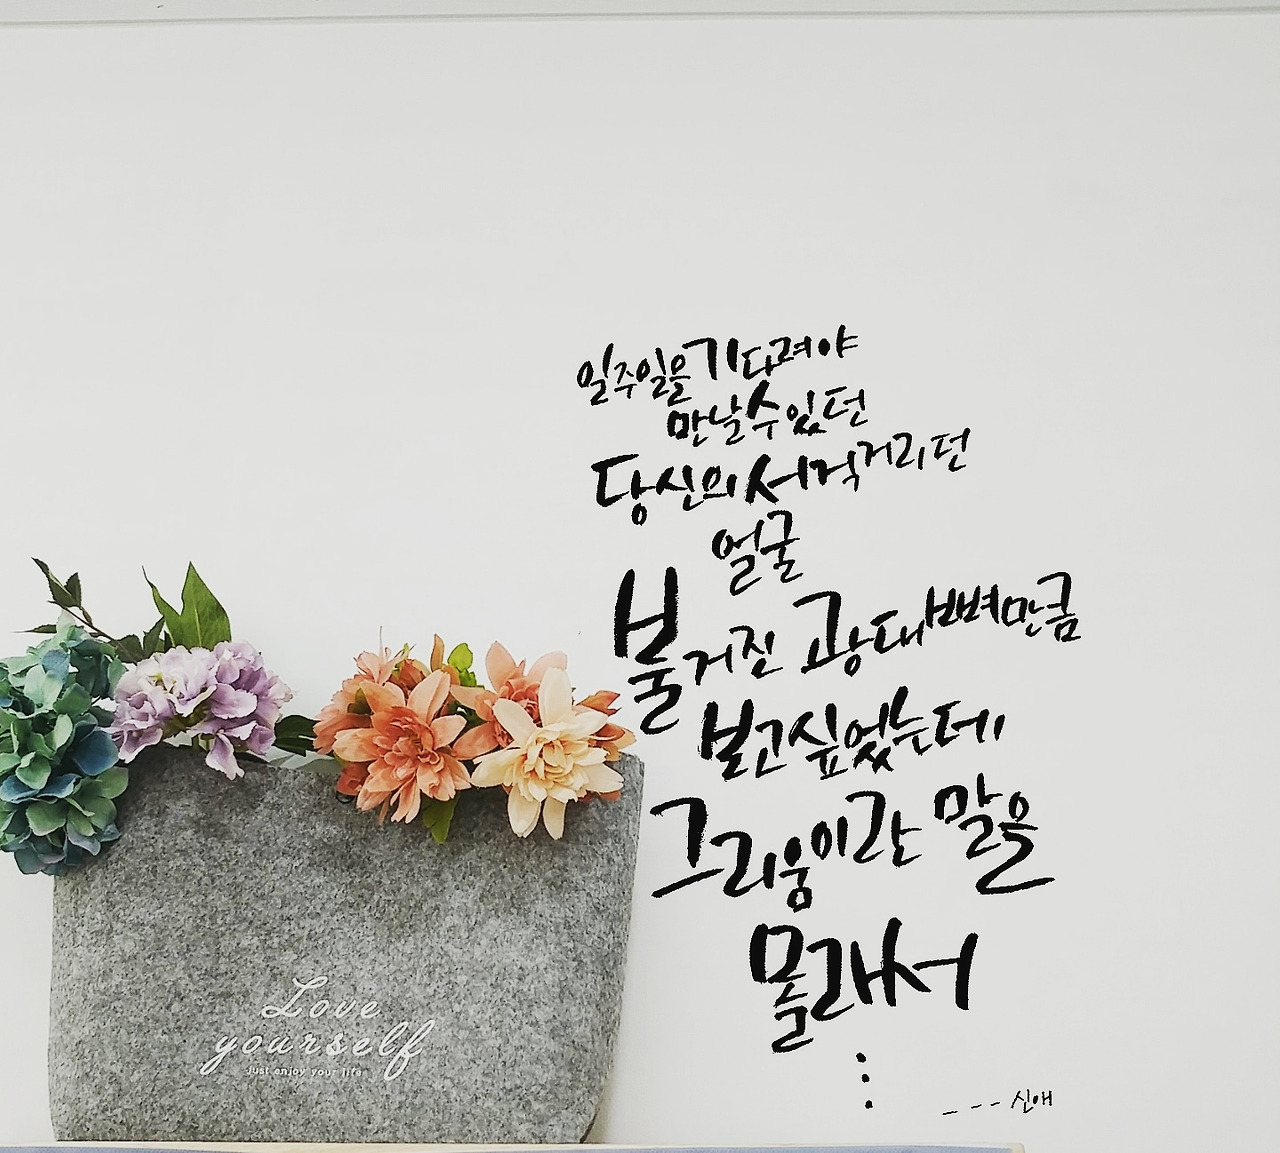 일주일을 기다려야
만날 수 있던
당신의 서걱거리던
얼굴
불거진 광대뼈만큼
보고싶었는데
그리움이란 말을
몰래서
⋮
--- 신애
Love
yourself
just enjoy your life